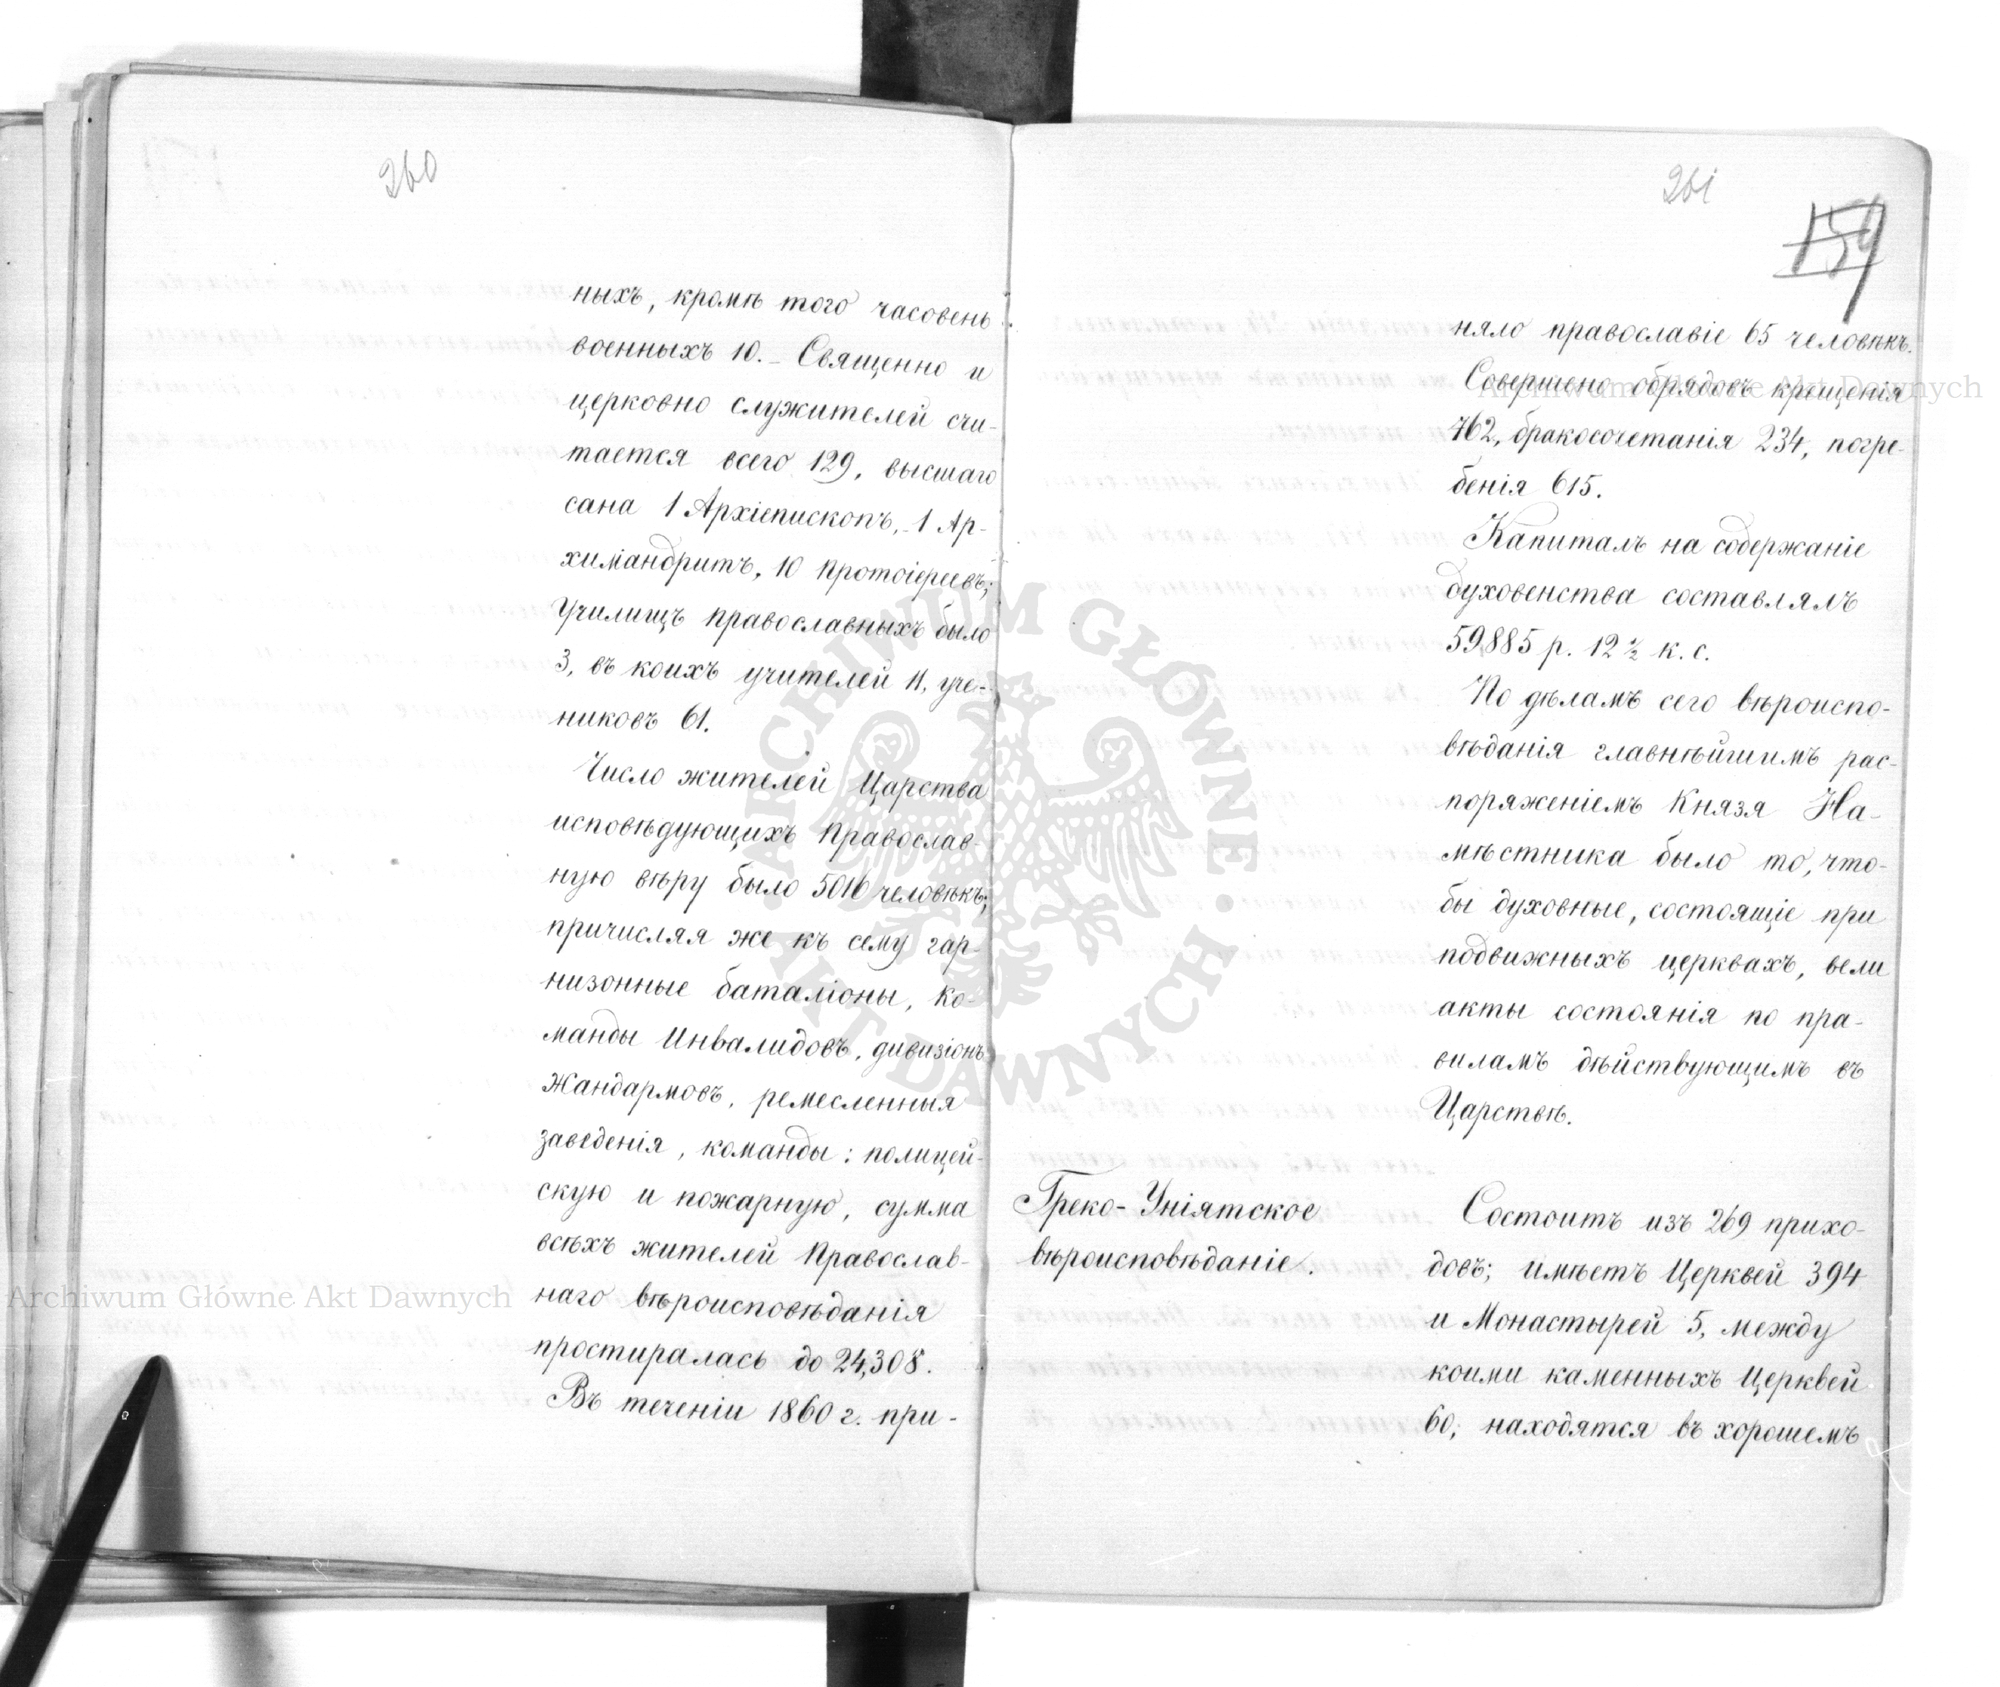 260
ныхъ, кромѣ того часовень
военныхъ 10. – Священно и
церковно служителей счи-
тается всего 129, высшаго
сана 1 Архіепископъ, 1 Ар-
химандритъ, 10 протоіереевъ;
Училищъ православныхъ было
3, въ коихъ учителей 11, уче-
никовъ 61.
Число жителей Царства
исповѣдующихъ Православ-
ную вѣру было 5016 человѣкъ;
причисляя же къ сему гар-
низонные баталіоны, ко-
манды Инвалидовъ, дивизіонъ
Жандармовъ, ремесленныя
заведенія, команды: полицей-
скую и пожарную, сумма
всѣхъ жителей Православ-
наго вѣроисповѣданія
простиралась до 24,308.
Въ теченіи 1860 г. при-
261
159
няло православіе 65 человѣкъ.
Совершено обрядовъ крещенія
762, бракосочетанія 234, погре-
бенія 615.
Капиталъ на содержаніе
духовенства составлялъ
59,885 р. 12 ½ к. с.
По дѣламъ сего вѣроиспо-
вѣданія главнѣйшимъ рас-
поряженіемъ Князя На-
мѣстника было то, что-
бы духовные, состоящіе при
подвижныхъ церквахъ, вели
акты состоянія по пра-
виламъ дѣйствующимъ въ
Царствѣ.
Греко-Уніятское
вѣроисповѣданіе.
Состоитъ изъ 269 прихо-
довъ; имѣетъ Церквей 394
и Монастырей 5, между
коими каменныхъ Церквей
60; находятся въ хорошемъ
Archiwum Główne Akt Dawnych
Archiwum Główne Akt Dawnych
ARCHIWUM GŁÓWNE · AKT DAWNYCH ·